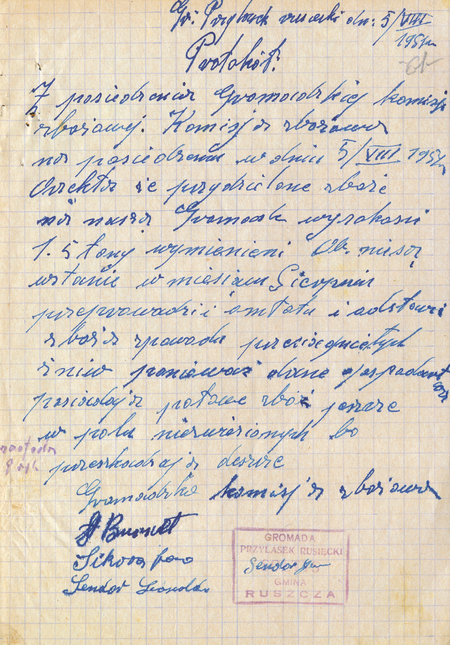 Gr. Przylasek rusiecki dn: 5/VIII 1951r
Protokół.
Z posiedzenia Gromadzkiej komisji
zbożowej. Komisja zbożowa
na posiedzeniu w dniu 5/VIII 1951r
że przydzielone zboże
na nasza Gromade wysokosci
1.5 tony wymienieni Ob. niesą
wstanie w miesiącu Sierpniu
przeprowadzić i omłotu i odstawi
zboża spowodu
żniw ponieważ dane gospodarstwa
posiadają połowe zboż jeszcze
w polu niezwiezionych bo
przeszkadzają deszcze
Gromadzka komisja zbożowa
Sikora
Sendor
GROMADA
PRZYLASEK RUSIECKI
Sendor
GMINA
RUSZCZA